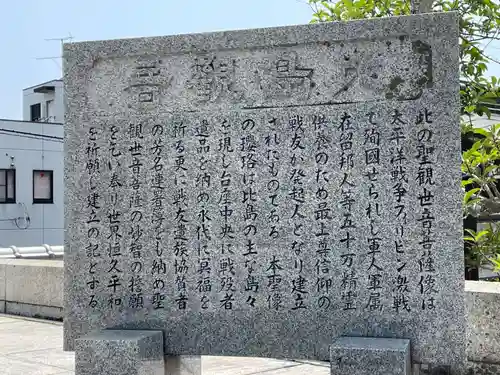 比島観音
此の聖観世音菩薩像は
太平洋戦争フィリピン激戦
で殉国せられし軍人軍属
在留邦人等五十万精霊
供養のため最上尊信仰の
戦友が発起人となり建立
されたものである 本聖像
の瓔珞は比島の主な島々
を現し台座中央に戦歿者
遺品を納め永代に冥福を
祈る更に戦友遺族協賛者
の芳名連著簿をも納め聖
観世音菩薩の妙智の
を乞い奉り世界恒久平和
を祈願し建立の記とする